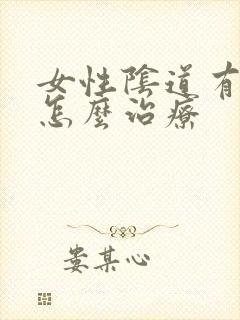 女性陰道有
怎麼治療
娄某心